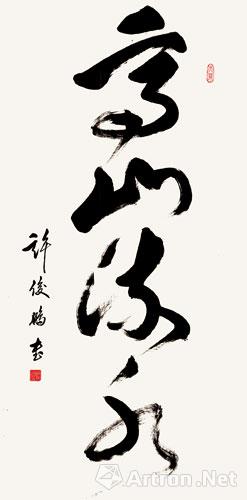 高山流水
许俊鹏书
Artron.Net